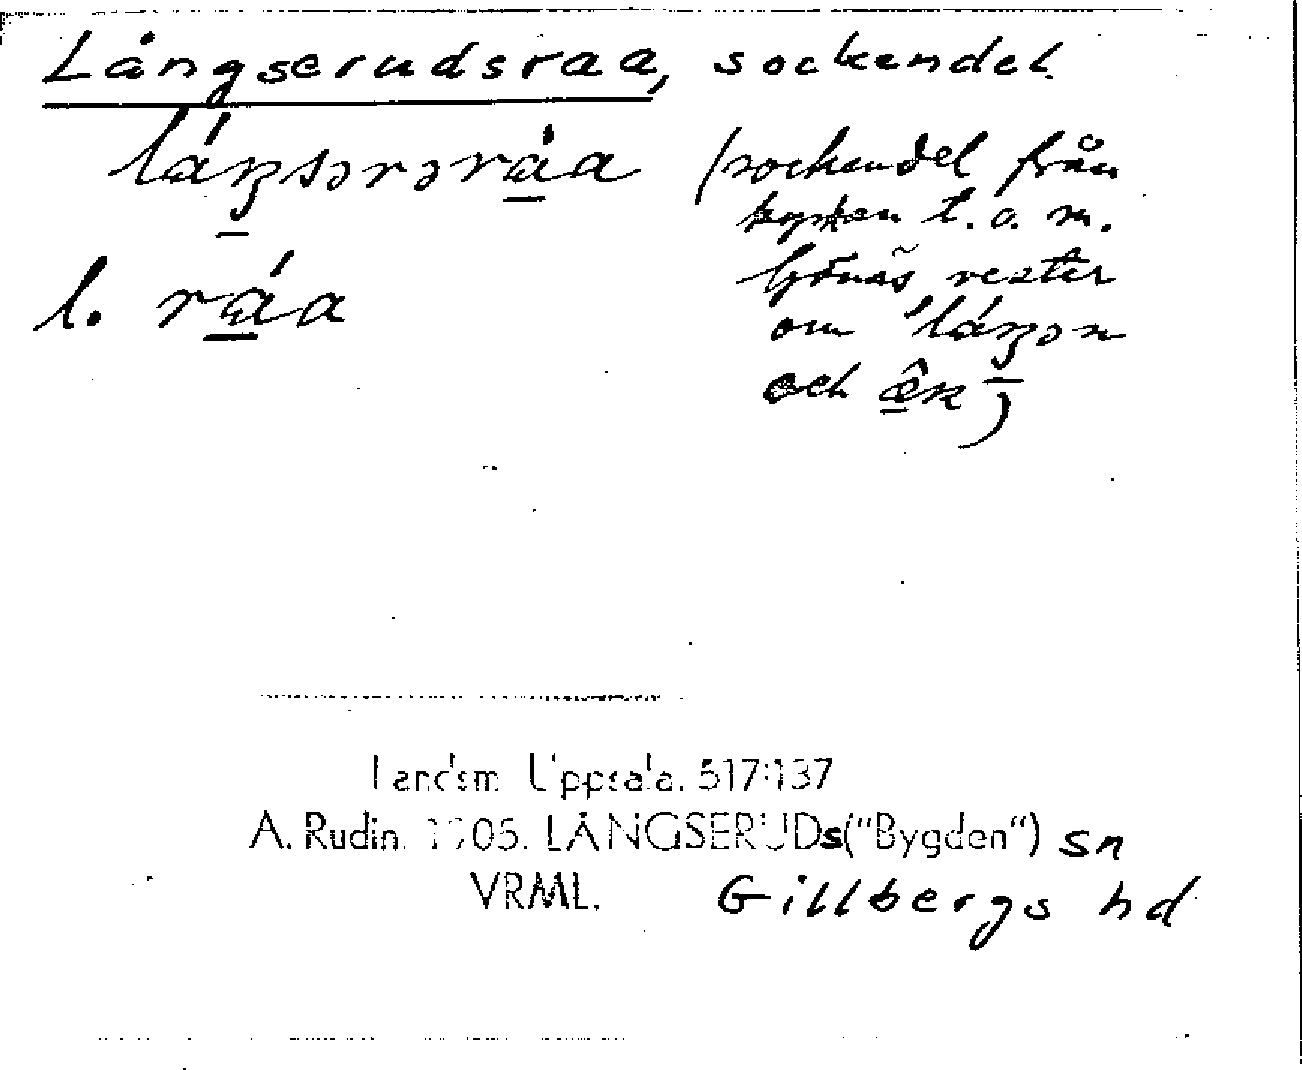 Långserudsraa, sockendel
láŋsərəráa (sockendel från
kyrkan t.o.m.
l. ráa
vester
om láŋən
och
Landsm. Uppsala. 517:137
A. Rudin. 1905. LÅNGSERUDs("Bygden") sn
VRML. Gillbergs hd